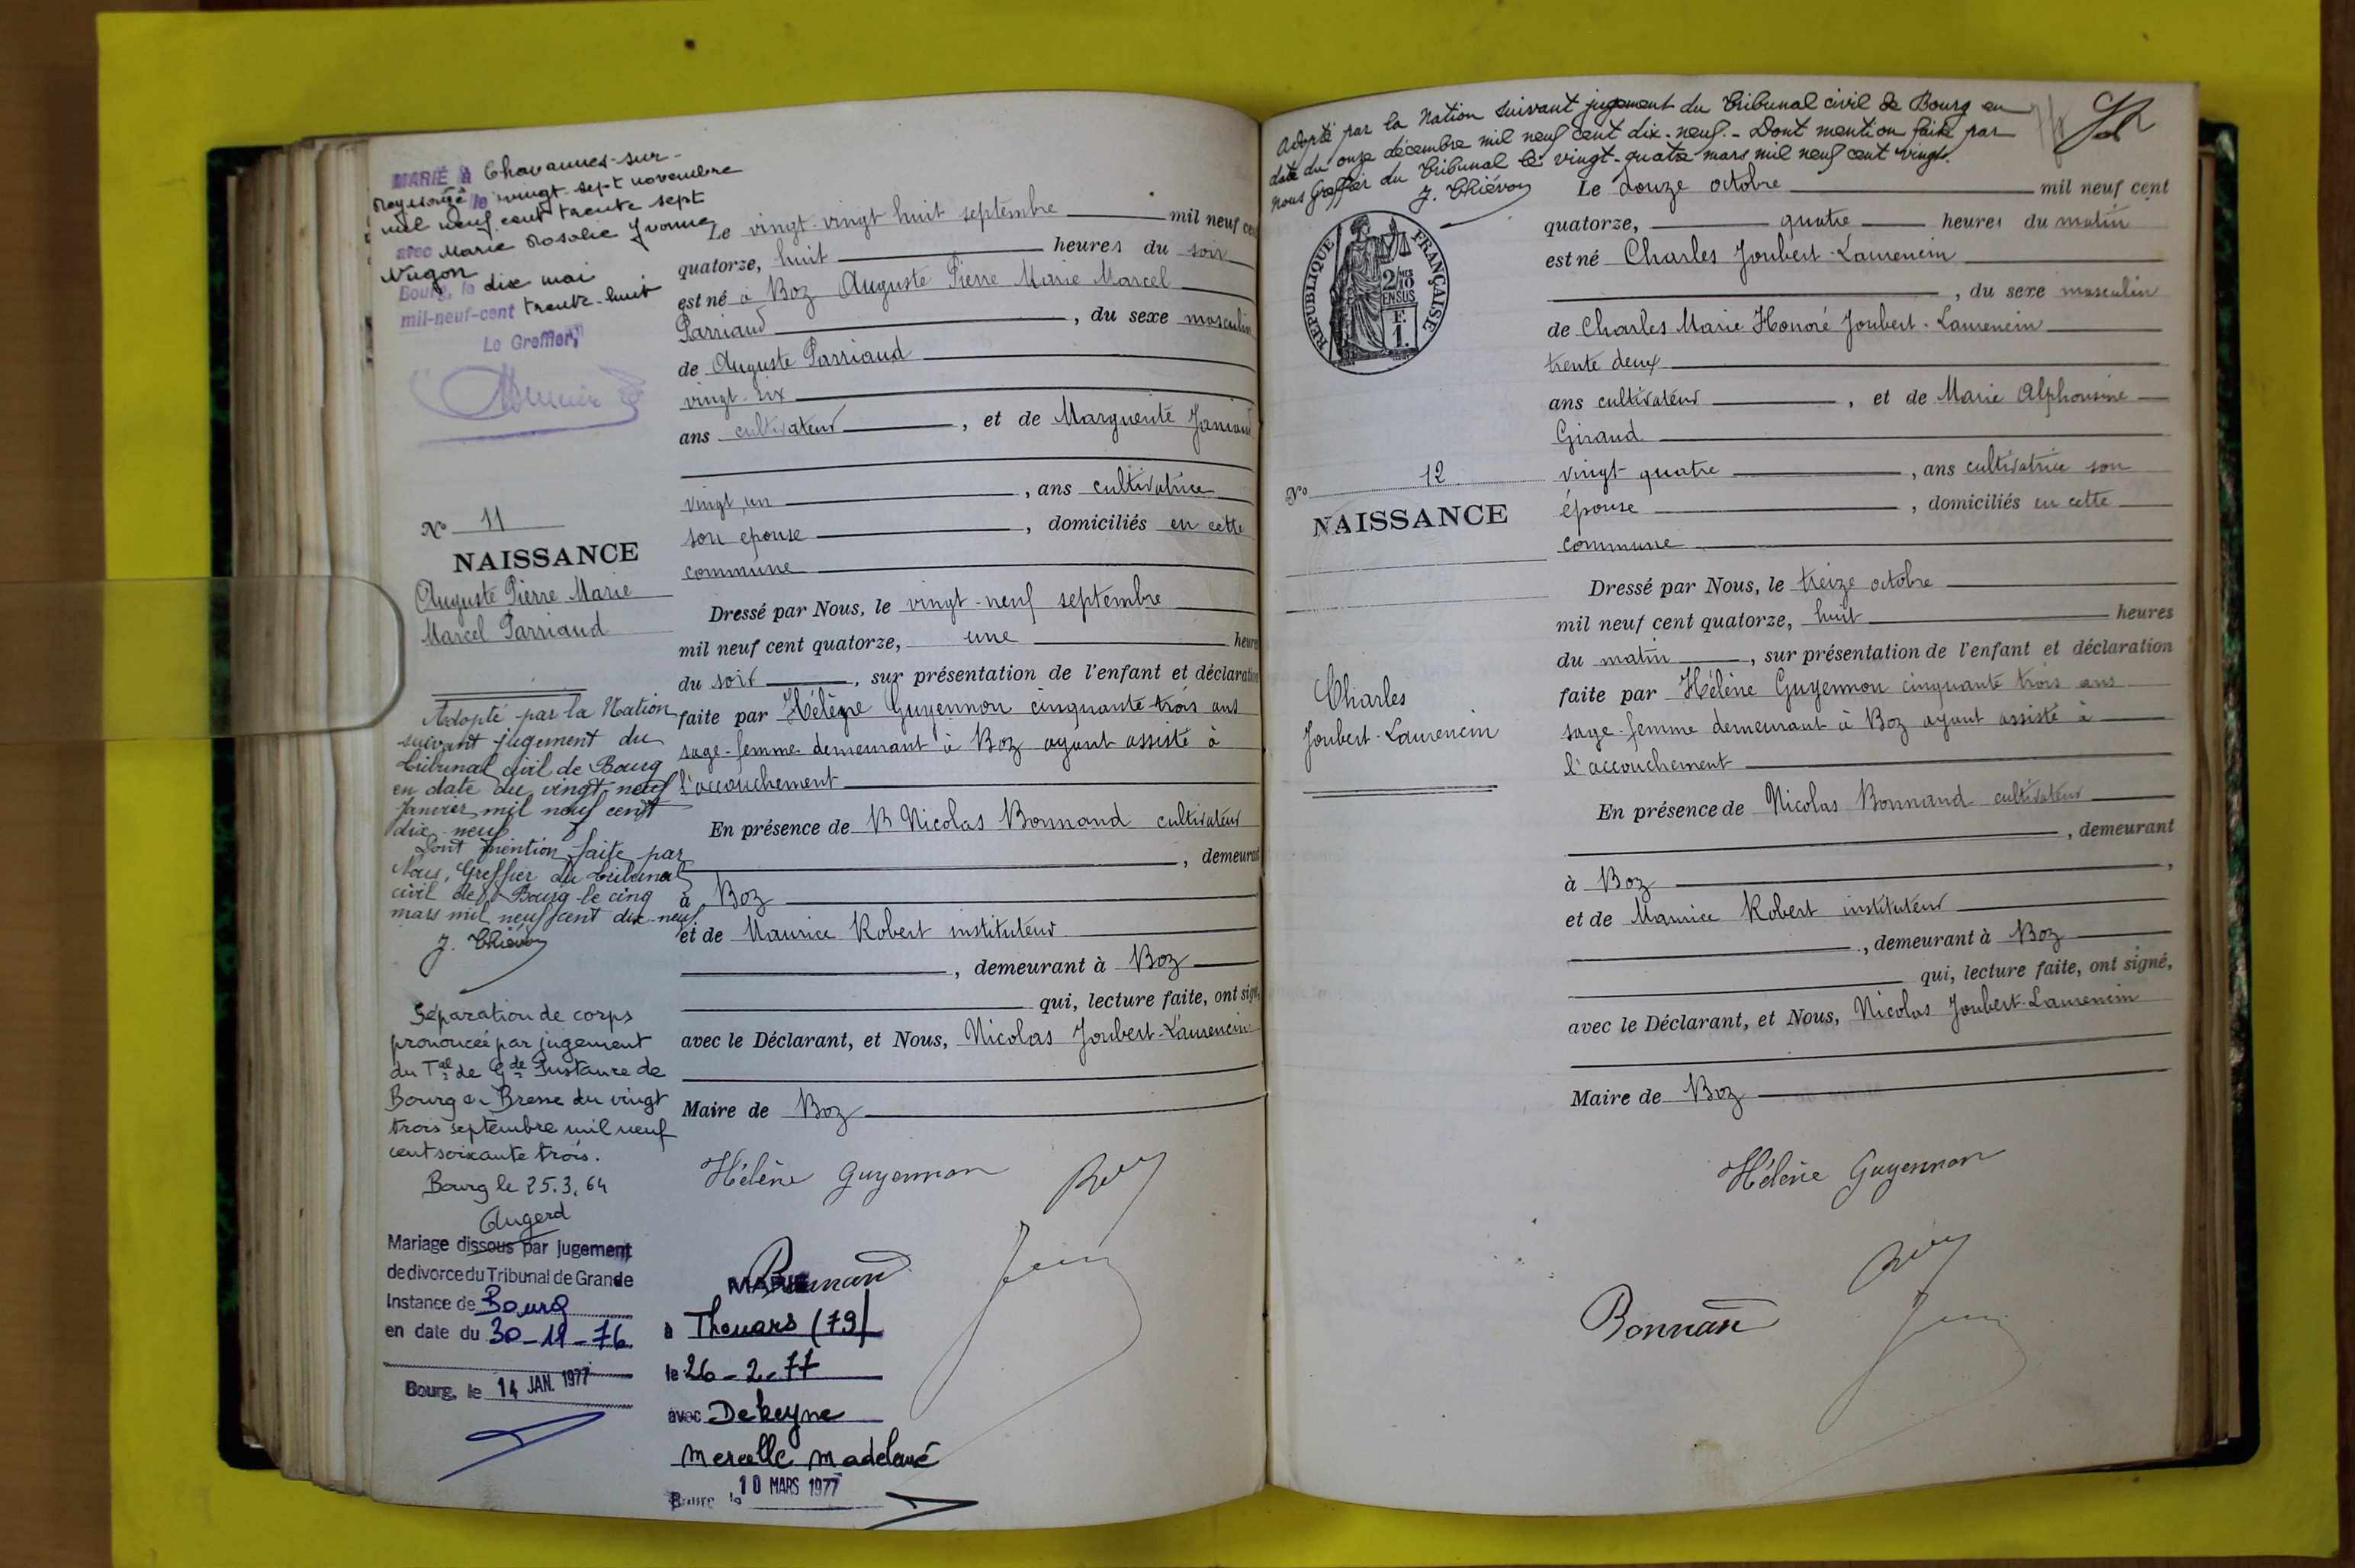 MARIÉ à Chavannes-sur-
Reyssouze le vingt-sept novembre
mil neuf cent trente sept
avec Marie Rosalie Yvonne
Nugon
Bourg, le dix mai
mil-neuf-cent trente-huit
Le Greffier,
N° 11
NAISSANCE
Auguste Pierre Marie
Marcel Parriaud
Adopté par la Nation
suivant jugement du
tribunal civil de Bourg
en date du vingt-neuf
Janvier mil neuf cent
dix-neuf
Dont mention faite par
Nous, Greffier du tribunal
civil de Bourg le cinq
mars mil neuf cent dix-neuf.
J. Thiévon
Séparation de corps
prononcée par jugement
du Tal de Gde Instance de
Bourg en Bresse du vingt
trois septembre mil neuf
cent soixante trois.
Bourg le 25.3.64
Augerd
Mariage dissous par jugement
de divorce du Tribunal de Grande
Instance de Bourg
en date du 30-11-76
Bourg, le 14 JAN. 1977
Le vingt-vingt huit septembre mil neuf cent
quatorze, huit heures du soir
est né à Boz Auguste Pierre Marie Marcel
Parriaud, du sexe masculin
de Auguste Parriaud
vingt-six
ans cultivateur, et de Marguerite Janiaud
vingt un, ans cultivatrice
son epouse, domiciliés en cette
commune
Dressé par Nous, le vingt-neuf septembre
mil neuf cent quatorze, une heure
du soir, sur présentation de l'enfant et déclaration
faite par Hélène Guyennon cinquante trois ans
sage-femme demeurant à Boz ayant assisté à
l'accouchement
En présence de B Nicolas Bonnand cultivateur
, demeurant
à Boz
et de Maurice Robert instituteur
, demeurant à Boz
qui, lecture faite, ont signé,
avec le Déclarant, et Nous, Nicolas Joubert-Laurencin
Maire de Boz
Hélène Guyennon
Bonnand
MARIÉ
à Thouars (79)
le 26-2-77
avec Dekeyne
Marcelle Madeleine
Bourg, le 10 MARS 1977
Adopté par la Nation suivant jugement du Tribunal civil de Bourg en
date du onze décembre mil neuf cent dix-neuf.- Dont mention faite par
nous Greffier du Tribunal le vingt-quatre mars mil neuf cent vingt.
J. Thiévon
RÉPUBLIQUE FRANÇAISE
2/10 EN SUS
F.
1.
N° 12
NAISSANCE
Charles
Joubert-Laurencin
Le douze octobre mil neuf cent
quatorze, quatre heures du matin
est né Charles Joubert-Laurencin
, du sexe masculin
de Charles Marie Honoré Joubert-Laurencin
trente deux
ans cultivateur, et de Marie Alphonsine
Giraud
vingt-quatre, ans cultivatrice son
épouse, domiciliés en cette
commune
Dressé par Nous, le treize octobre
mil neuf cent quatorze, huit heures
du matin, sur présentation de l'enfant et déclaration
faite par Hélène Guyennon cinquante trois ans
sage-femme demeurant à Boz ayant assisté à
l'accouchement
En présence de Nicolas Bonnand cultivateur
, demeurant
à Boz,
et de Maurice Robert instituteur
, demeurant à Boz
qui, lecture faite, ont signé,
avec le Déclarant, et Nous, Nicolas Joubert-Laurencin
Maire de Boz
Hélène Guyennon
Bonnand